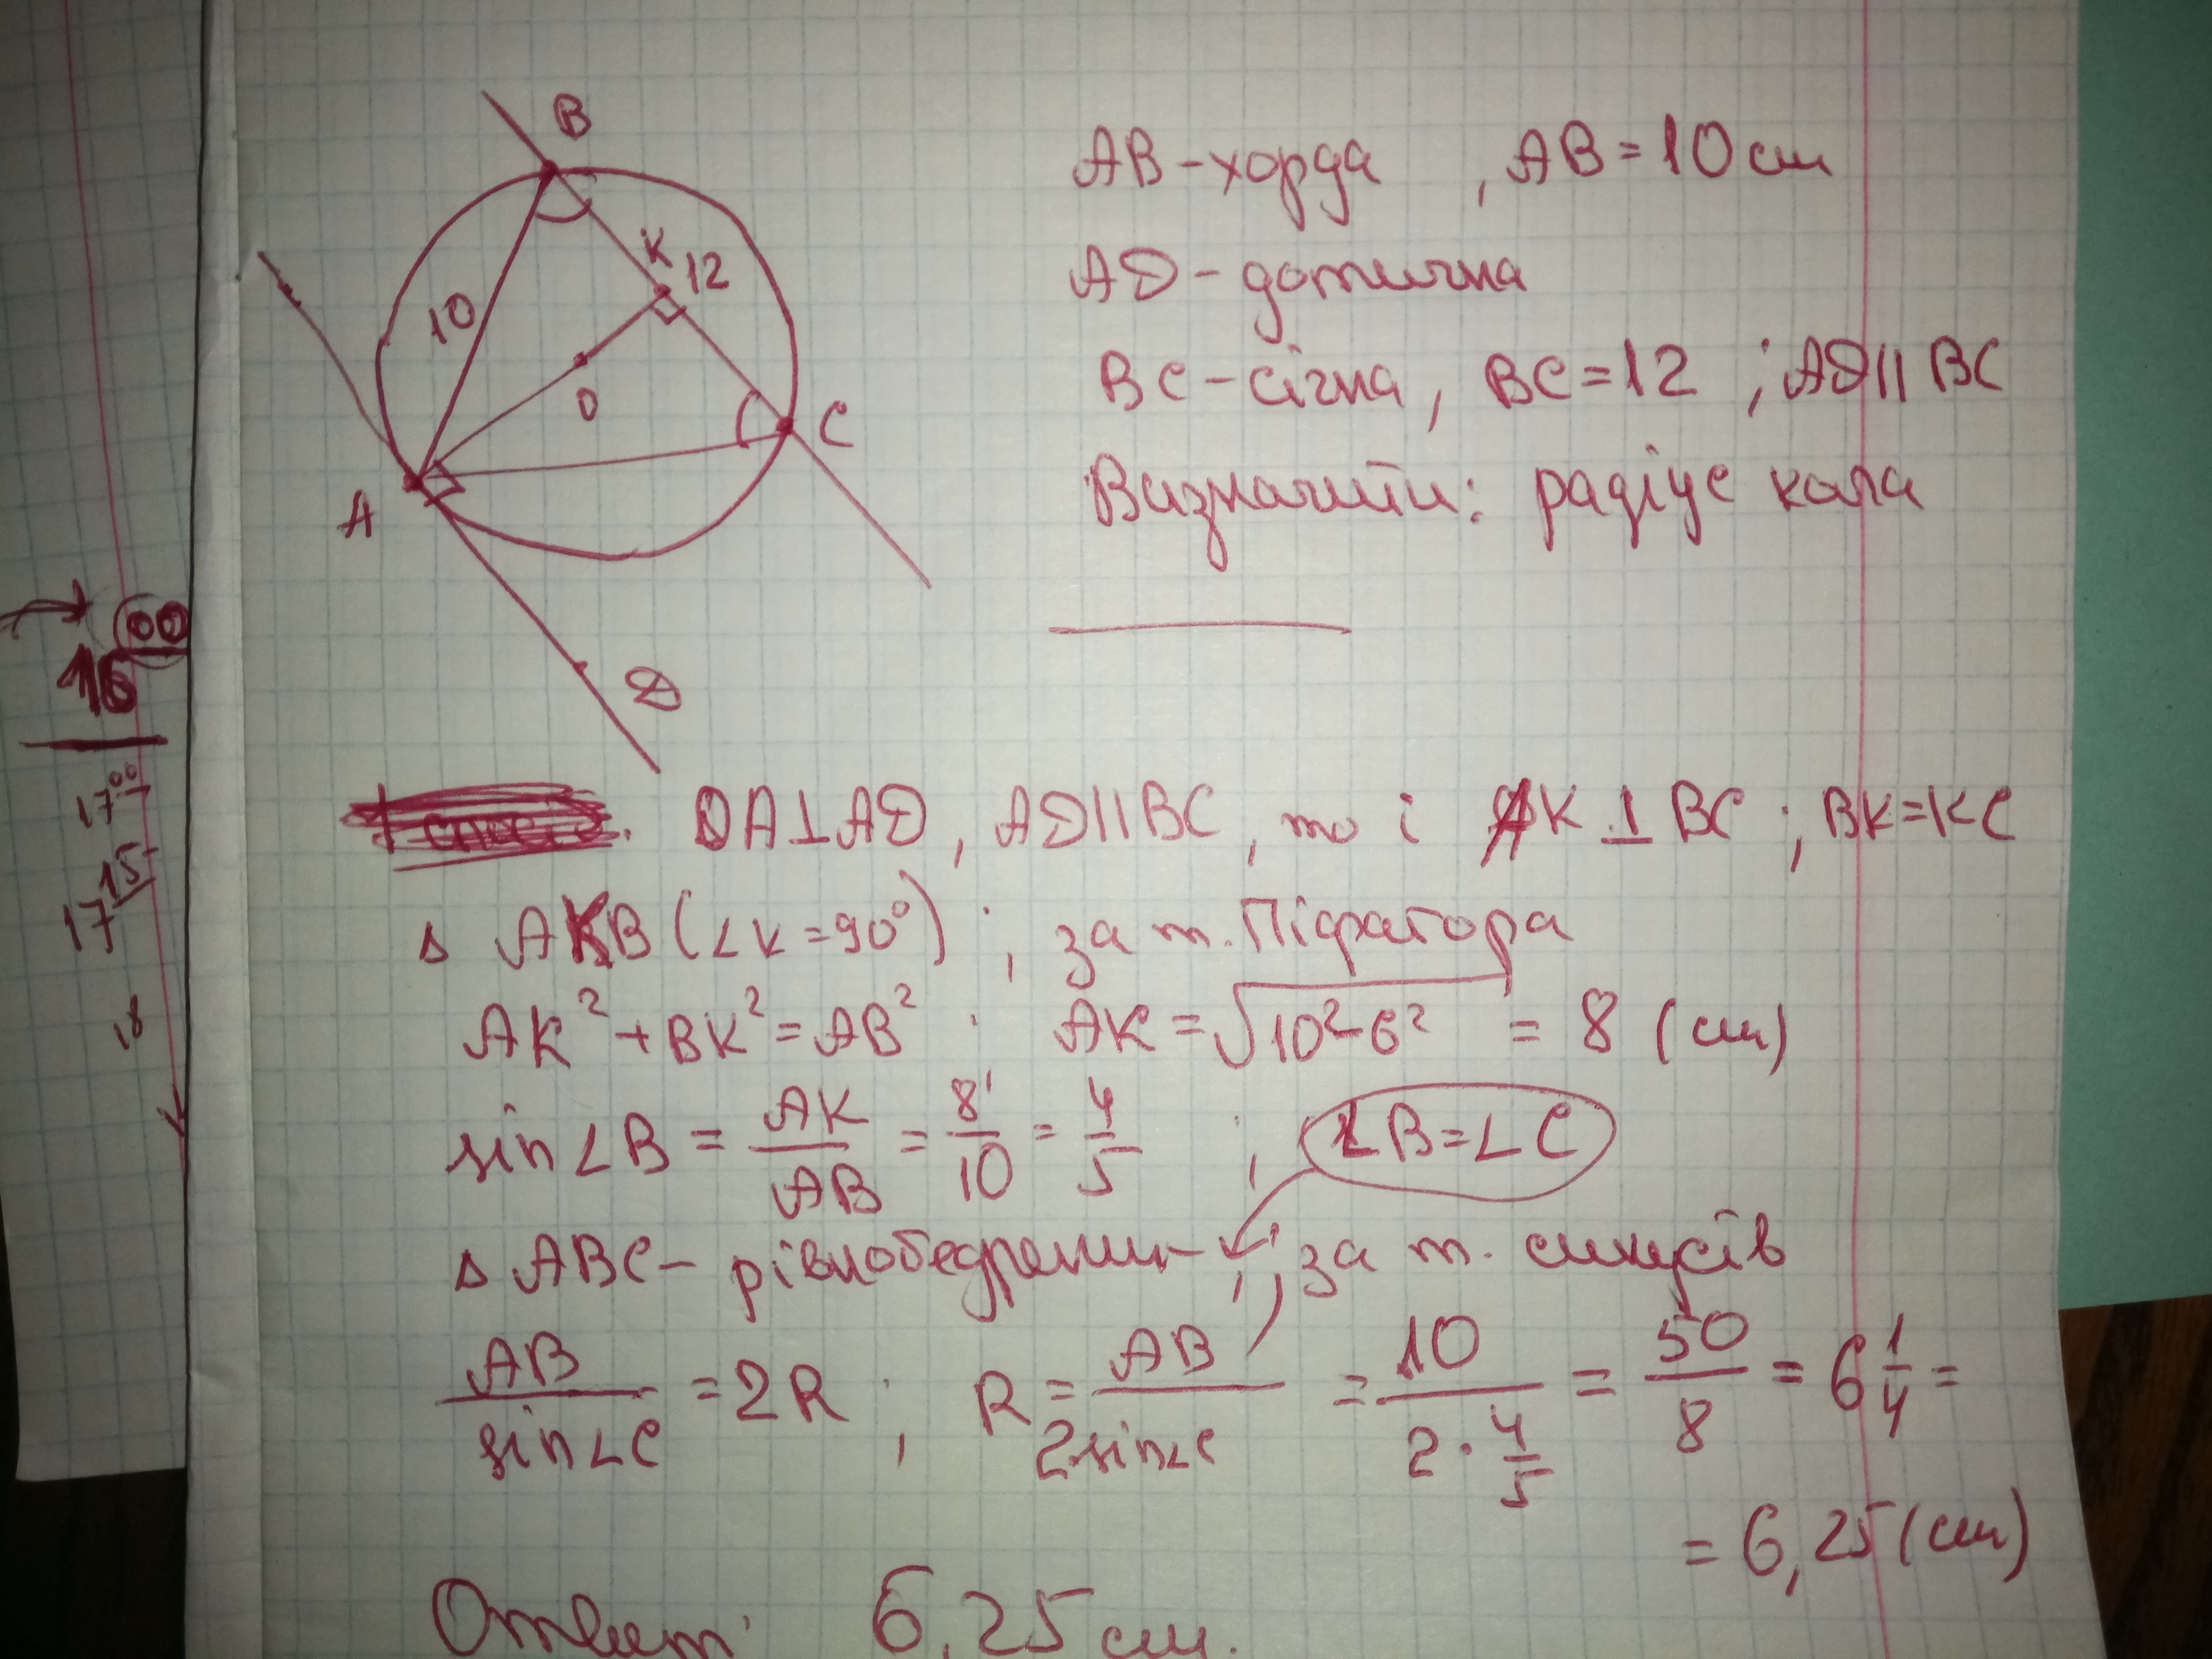 B
K
12
10
O
C
A
D
AB - хорда , AB = 10 см
AD - дотична
BC - січна , BC = 12 ; AD || BC
Визначити: радіус кола
00
16
17 00
17 15
18
OA ⊥ AD , AD || BC , то і AK ⊥ BC ; BK = KC
Δ AKB (∠K = 90°) ; за т. Піфагора
AK² + BK² = AB² ; AK = √10² - 6² = 8 (см)
sin∠B = AK/AB = 8/10 = 4/5 ; ∠B = ∠C
Δ ABC - рівнобедрений , за т. синусів
AB/sin∠C = 2R ; R = AB/2sin∠C = 10/2·4/5 = 50/8 = 6 1/4 =
= 6,25 (см)
Ответ: 6,25 см.